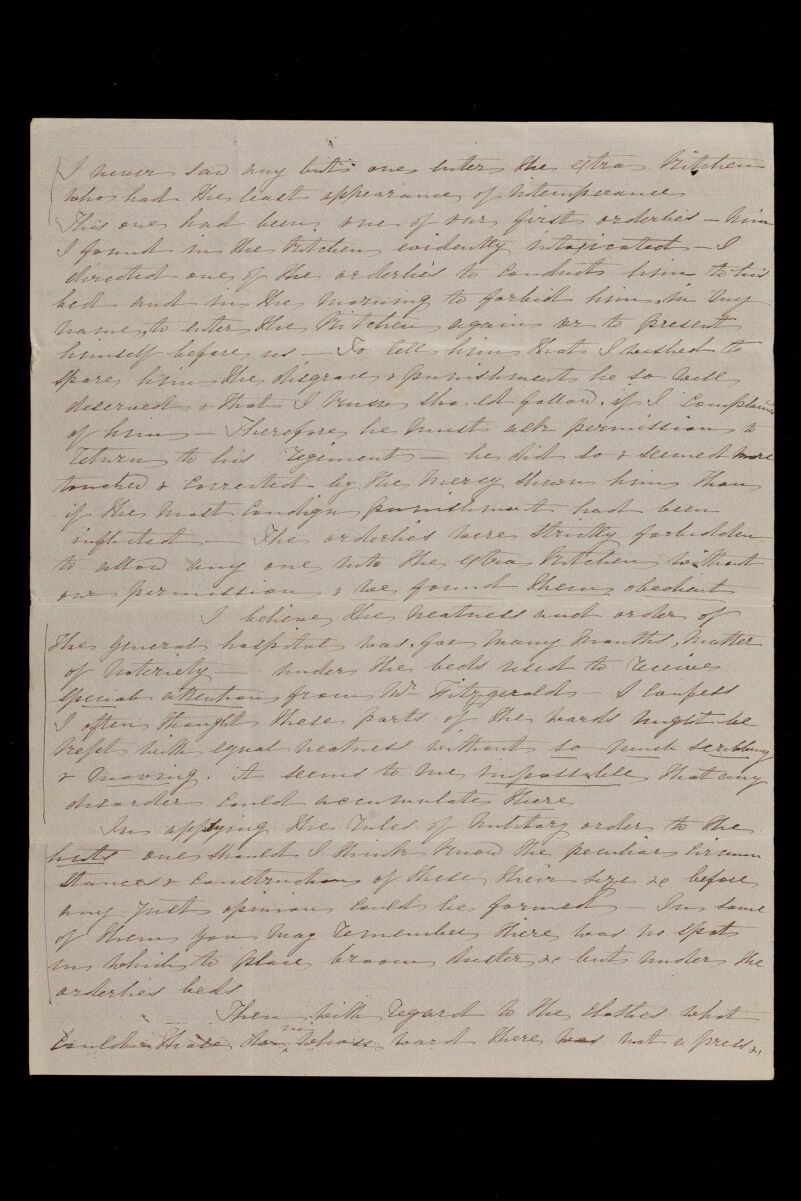 I never saw any but one enter the extra Kitchen
who had the least appearance of intemperance
This one had been one of our first orderlies – him
I found in the Kitchen evidently intoxicated – I
directed one of the orderlies to conduct him to his
bed and in the morning to forbid him, in my
name, to enter the Kitchen again or to present
himself before us – To tell him that I wished to
spare him the disgrace & punishment he so well
deserved & that I knew should follow, if I complained
of him – Therefore he must ask permission to
return to his regiment – he did so & seemed more
touched & corrected by the mercy shewn him than
if the most condign punishment had been
inflicted – The orderlies were strictly forbidden
to allow any one into the extra Kitchen without
our permission & we found them obedient
I believe the neatness and order of
the general hospital was, for many months, matter
of notoriety – under the beds used to receive
special attention from Mr Fitzgerald – I confess
I often thought these parts of the wards might be
kept with equal neatness without so much scrubbing
& moving. it seems to me impossible that any
disorder could accumulate there
In applying the rules of military order to the
huts one should I think know the peculiar circum
stances & construction of these, their size &c before
any just opinion could be formed – In some
of them you may remember there was no spot
in which to place broom duster &c but under the
orderlies beds
Then with regard to the clothes what
could those do in whose ward there was not a press,